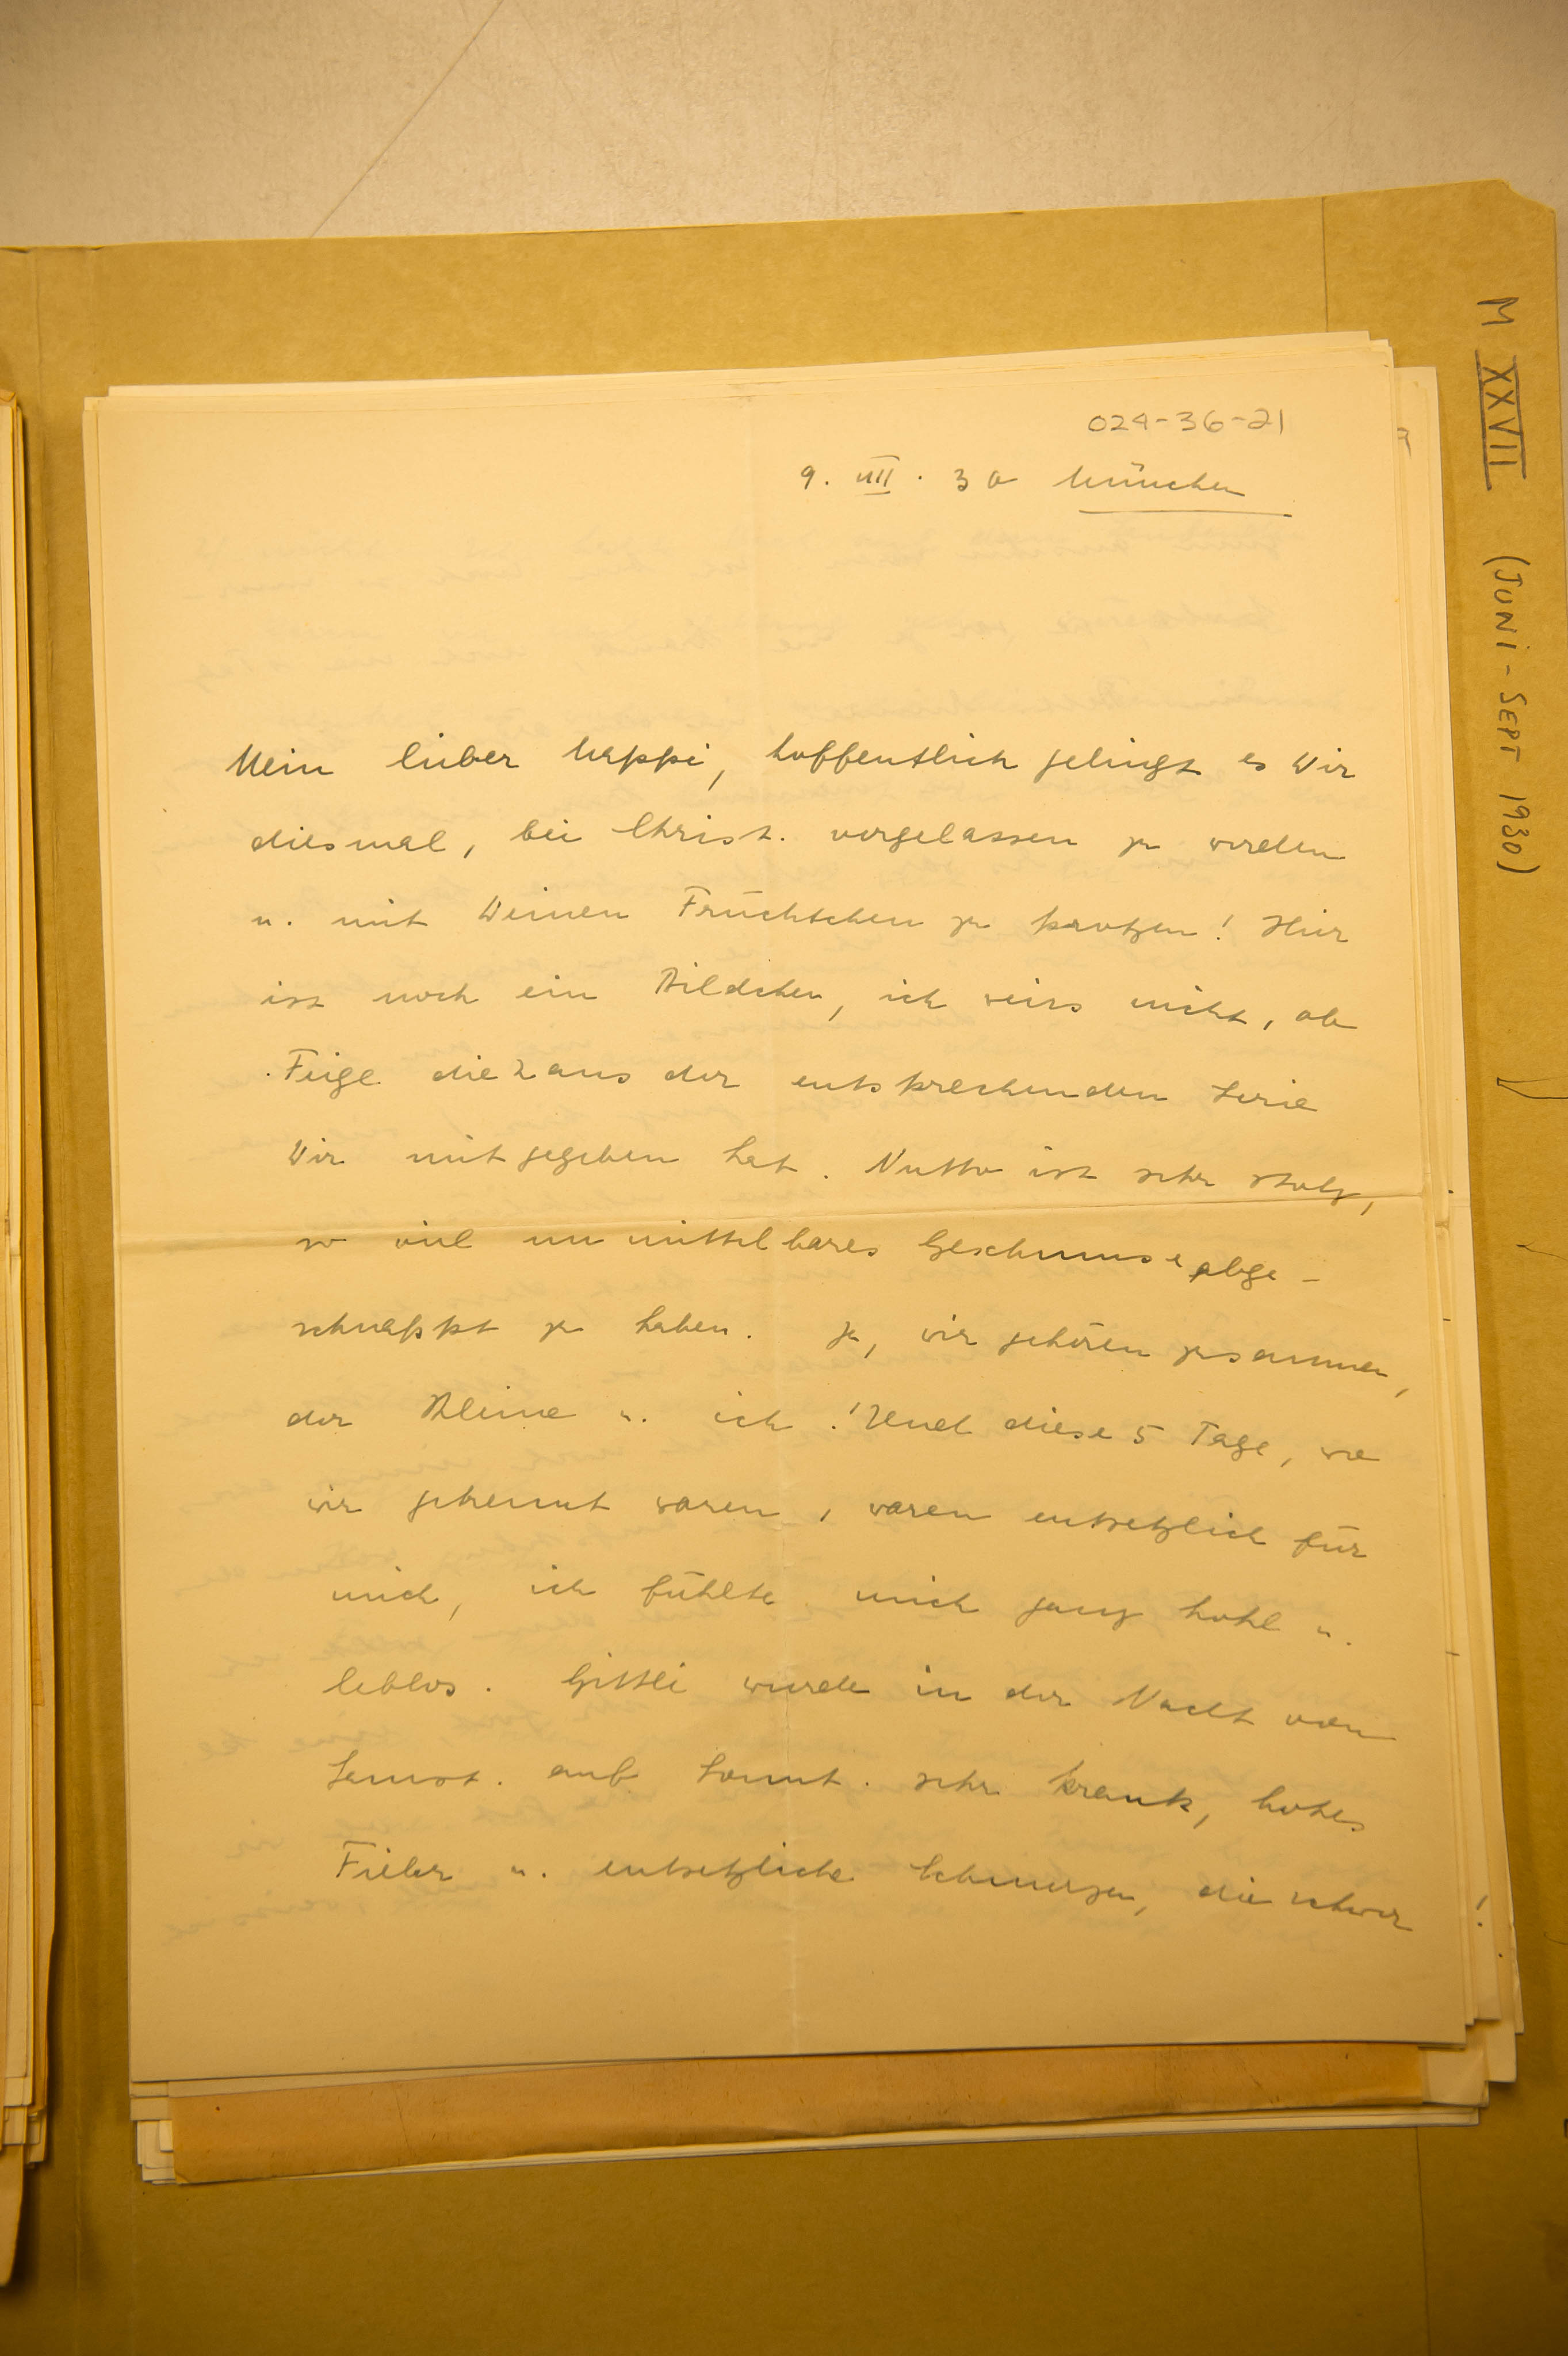 024-36-21
9. VII. 30 München
Mein lieber Mappi, hoffentlich gelingt es Dir
diesmal, bei Christ. vorgelassen zu werden
u. mit Deinen Früchtchen zu protzen! Hier
ist noch ein Bildchen, ich weiss nicht, ob
Feigl die 2 aus der entsprechenden Serie
Dir mitgegeben hat. Mutto ist sehr stolz,
so viel unmittelbares Geschmuse abge-
schnappt zu haben. Ja, wir gehören zusammen,
der Kleine u. ich! Und diese 5 Tage, wo
wir getrennt waren, waren entsetzlich für
mich, ich fühlte mich ganz hohl u.
leblos. Gittli wurde in der Nacht von
Samst. auf Sonnt. sehr krank, hohes
Fieber u. entsetzliche Schmerzen, die schwer
M XXVII (JUNI - SEPT 1930)